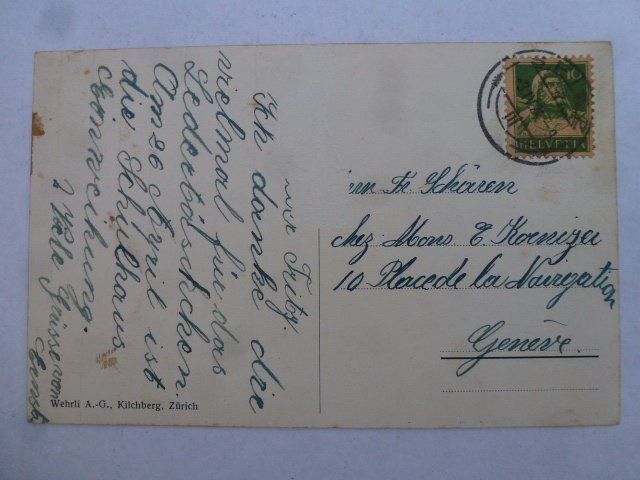 Ich danke dir
vielmal für das
Ledertäschchen.
Am 26 April ist
die Schulhaus
Einweihung.
Viele Grüsse von
Ernst.
10
HELVETIA
Fr. Schären
chez Mons E. Koenizer
10 Place de la Navigation
Genève.
Wehrli A.-G., Kilchberg, Zürich